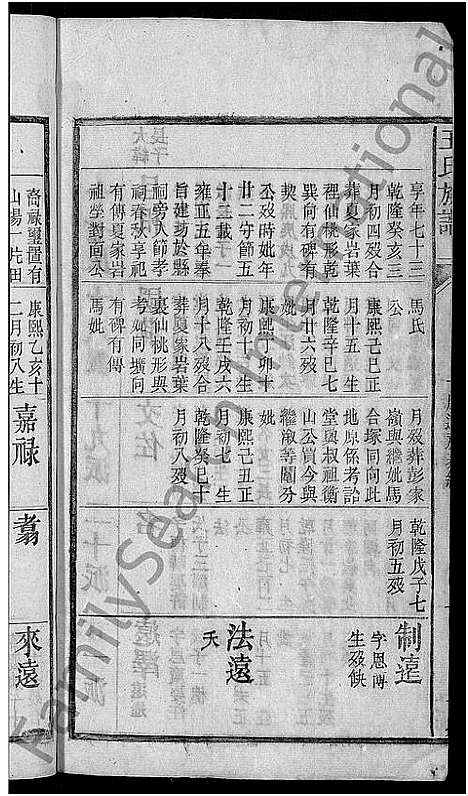 王氏族譜
享年七十三
乾隆癸亥三
月初四歿合
葬夏家岩葉
裡仙桃形乾
巽向有碑有
契
公歿時妣年
廿二守節五
十三載于
雍正五年奉
旨建坊於縣
祠旁入節孝
祠春秋享祀
有傳夏家岩
祖塋對面公
馬氏
公
康熙己巳正
月十五生
乾隆辛巳七
月廿六歿
妣
康熙己卯十
月初十生
乾隆壬戌六
月十八歿合
葬夏家岩葉
裏仙桃形與
考妣同墳同
有碑有傳
馬妣
月歿葬彭家
嶺與繼妣馬
合塚同向此
地原係考訟
堂與叔祖衡
山公買今與
繼淑等鬮分
妣
康熙己丑正
月初七生
乾隆癸巳十
月初八歿
乾隆戊子七
月初五歿
制遠
字恩傅
生歿缺
法遠
夭
裔祿璽置有
山場一片田
康熙乙亥十
二月初八生
嘉祿
翥
來遠
FamilySearch International